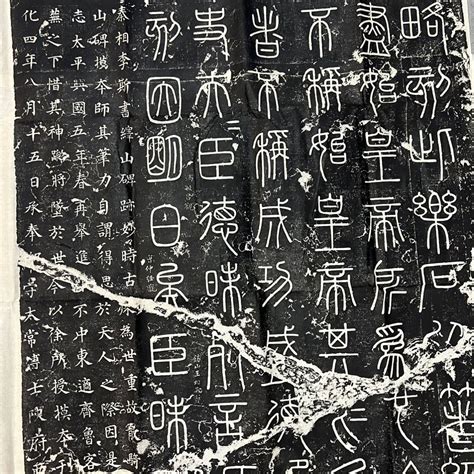 略刻此樂石
盡始皇帝所為也
不稱始皇帝其
者不稱成功盛德
史夫臣德昧死言
刻因明白矣臣昧
秦相李斯書繹山碑跡妙時古殊為世重故散騎
山碑摸本師其筆力自謂得思於天人之際因是
志太平興國五年春再舉進士不中東適齊魯客
蕪之下惜其神蹤將墜於世今以徐所授摸本
化四年八月十五日承奉守太常博士陝府西